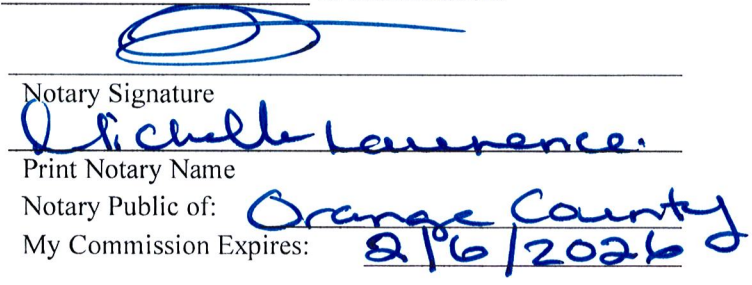 Notary Signature
Michelle Lawrence.
Print Notary Name
Notary Public of: Orange County
My Commission Expires: 2/6/2026